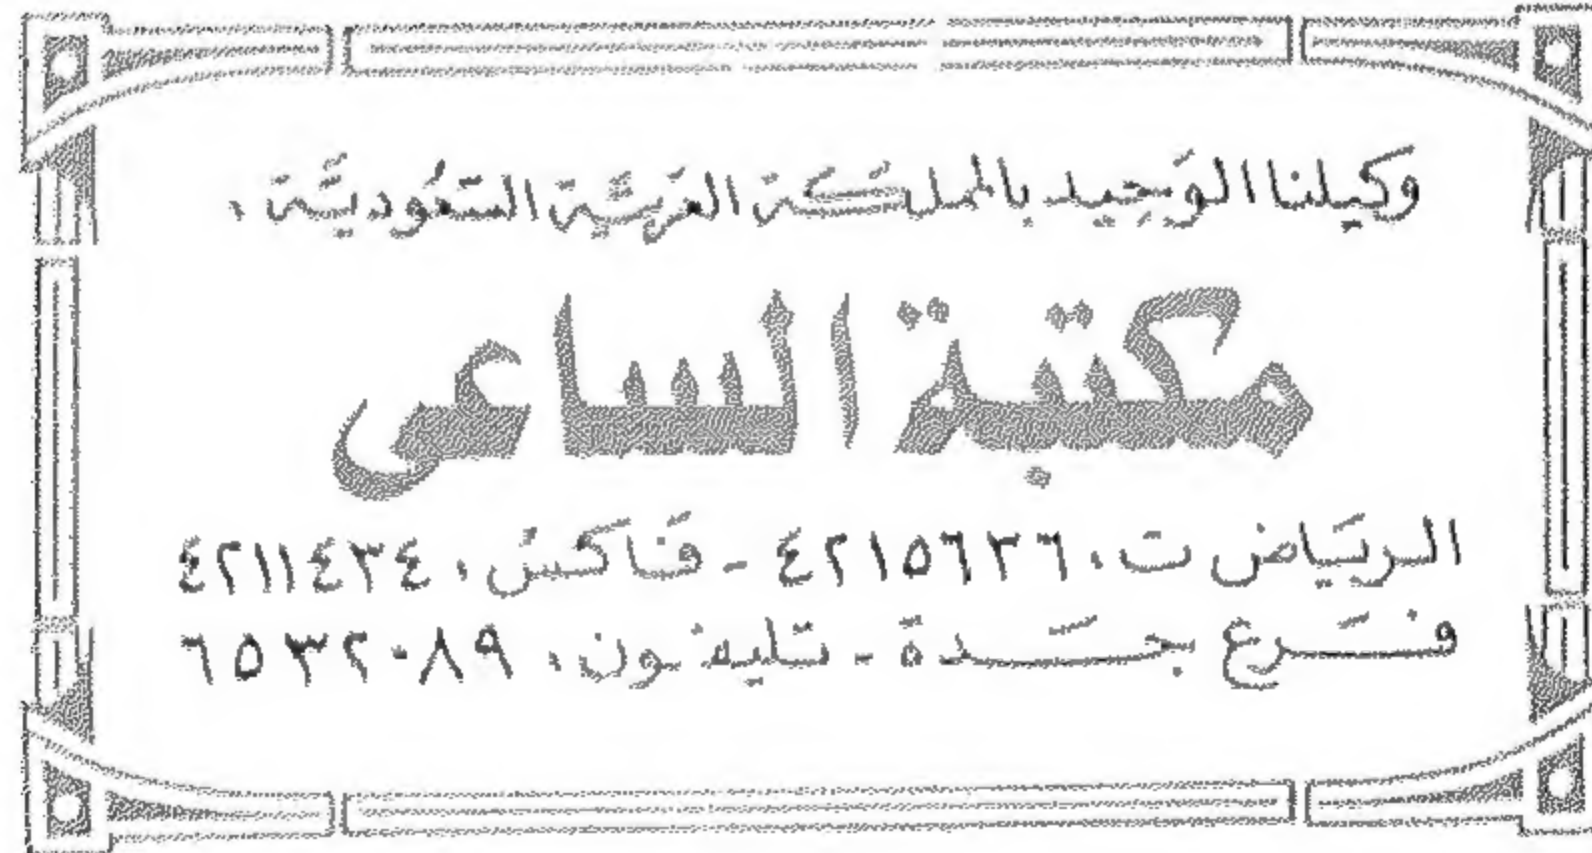 وكيلنا الوَحيد بالمملكَة العَربيَّة السَّعُوديَّة ،
مكتبة الساعى
الريَاض ت، ٤٢١٥٦٣٦ - فَاكسَ، ٤٢١١٤٣٤
فَرع جَدة - تليفون، ٦٥٣٢٠٨٩